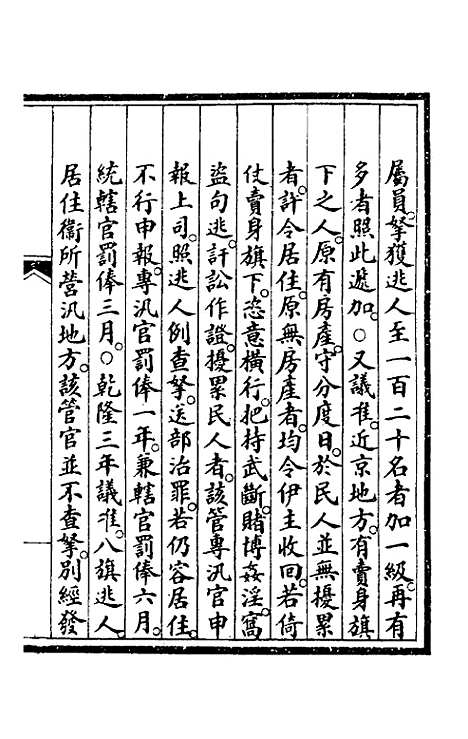 屬員。拏獲逃人至一百二十名者加一級。再有
多者照此遞加。○又議准。近京地方。有賣身旗
下之人。原有房產。守分度日。於民人並無擾累
者。許令居住。原無房產者。均令伊主收回。若倚
仗賣身旗下。恣意橫行。把持武斷。賭博姦淫。窩
盜句逃。訐訟作證。擾累民人者。該管專汛官申
報上司。照逃人例查拏。送部治罪。若仍容居住。
不行申報。專汛官罰俸一年。兼轄官罰俸六月。
統轄官罰俸三月。○乾隆三年議准。八旗逃人。
居住衞所營汛地方。該管官並不查拏。別經發